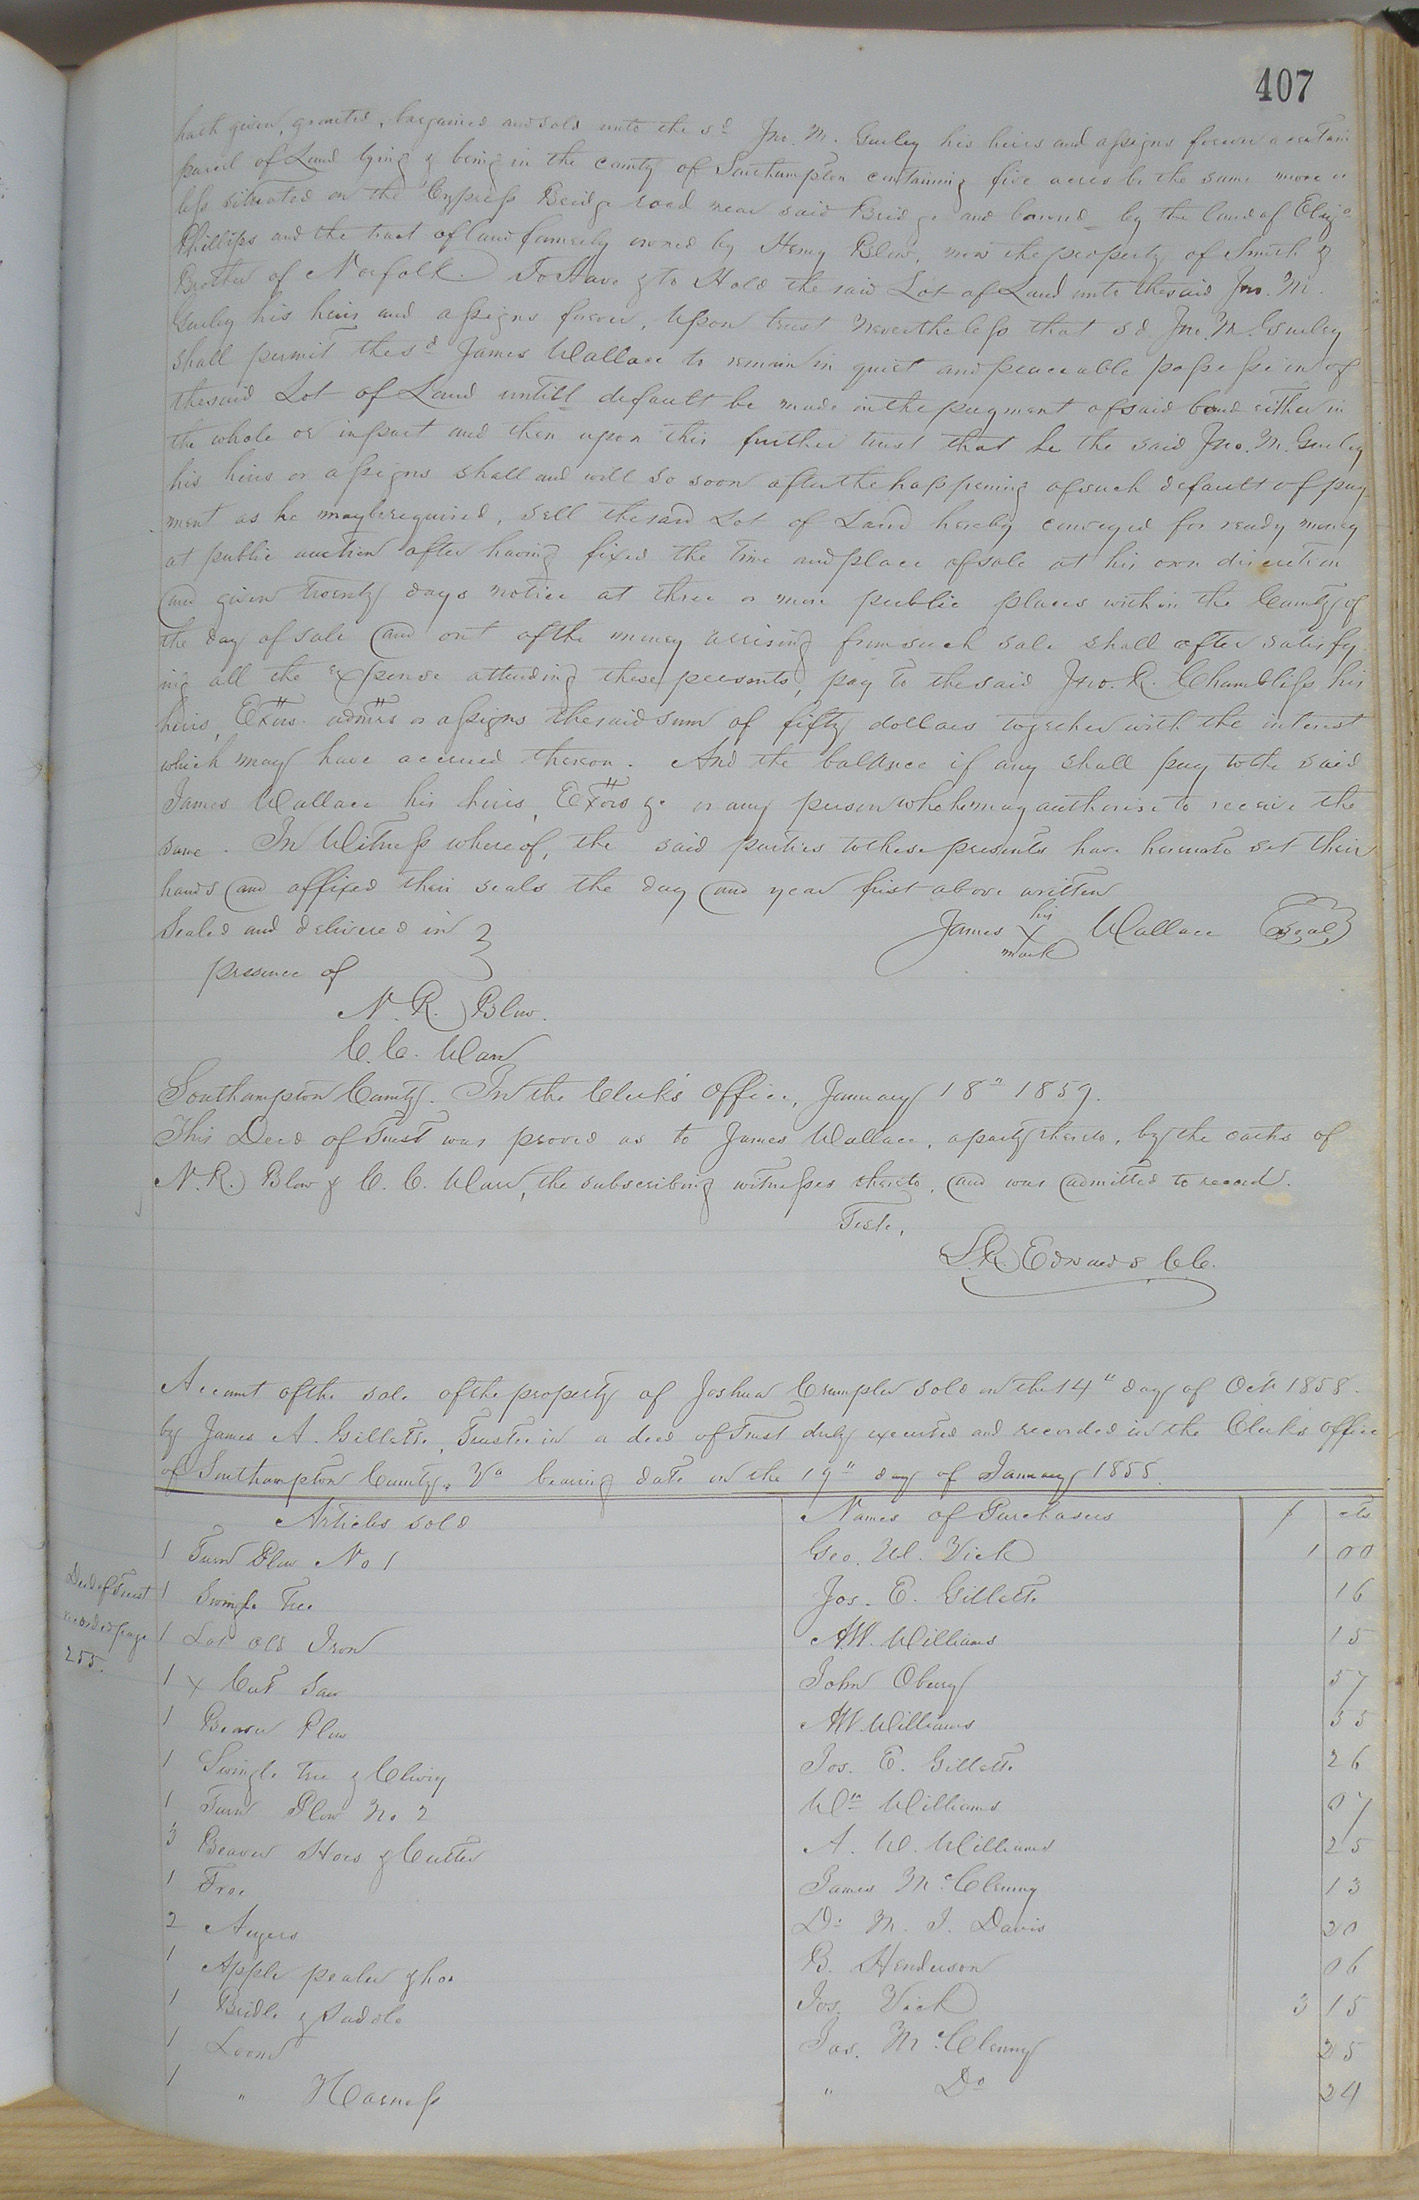 407
hath given, granted, bargained and sold unto the sd Jno. M. Gurley his heirs and assigns forever a certain
parcel of Land lying & being in the county of Southampton containing five acres be the same more or
less situated on the Cypress Bridge road near said Bridge and bound by the land of Eliza
Phillips and the tract of land formerly owned by Henry Blow, now the property of Smith &
Brother of Norfolk. To Have & to Hold the said Lot of Land unto the said Jno. M.
Gurley his heirs and assigns forever, Upon trust Nevertheless that sd Jno. M. Gurley
shall permit the sd James Wallace to remain in quiet and peaceable possession of
the said Lot of Land untill default be made in the payment of said bond either in
the whole or in part and then upon this further trust that he the said Jno. M. Gurley
his heirs or assigns shall and will so soon after the happening of such default of pay
ment as he may be required, sell the said Lot of Land hereby conveyed for ready money
at public auction after having fixed the time and place of sale at his own discretion
and given twenty days notice at three or more public places within the County of
the day of sale and out of the money arising from such sale shall after satisfy
ing all the expense attending these presents, pay to the said Jno. R. Chambliss his
heirs, Exors. admrs or assigns the said sum of fifty dollars together with the interest
which may have accrued thereon. And the balance if any shall pay to the said
James Wallace his heirs, Exors &c or any person who he may authorise to receive the
same. In Witness whereof, the said parties to these presents have hereunto set their
hands and affixed their seals the day and year first above written
Sealed and delivered in } James his X mark Wallace {Seal}
presence of
N. R. Blow.
C. C. Warr
Southampton County. In the Clerk's Office, January 18th 1859.
This Deed of Trust was proved as to James Wallace, a party thereto, by the oaths of
N. R. Blow & C. C. Warr, the subscribing witnesses thereto, and was admitted to record.
Teste,
L. R. Edwards CC.
Account of the sale of the property of Joshua Crumpler sold on the 14th day of Oct 1858.
by James A. Gillette, Trustee in a deed of Trust duly executed and recorded in the Clerk's office
of Southampton County, Va bearing date on the 19th day of January 1855.
Articles sold Names of Purchasers $ cts
1 Turn Plow No 1 Geo. W. Vick 1 00
Deed of Trust
recorded page
255.
1 Swingle Tree Jos. E. Gillette 16
1 Lot old Iron A.W. Williams 15
1 X Cut Saw John Obery 57
1 Beaver Plow A.W. Williams 55
1 Swingle tree & Clevey Jos. E. Gillette 26
1 Turn Plow No. 2 Wm Williams 07
3 Beaver Hoes & Cutter A. W. Williams 25
1 Froe James McClenny 13
2 Augers Dr M. J. Davis 20
1 Apple pealer & hoe B. Henderson 06
1 Bridle & Saddle Jos. Vick 3 15
1 Loom Jas. McClenny 25
1 " Harness " Do 24